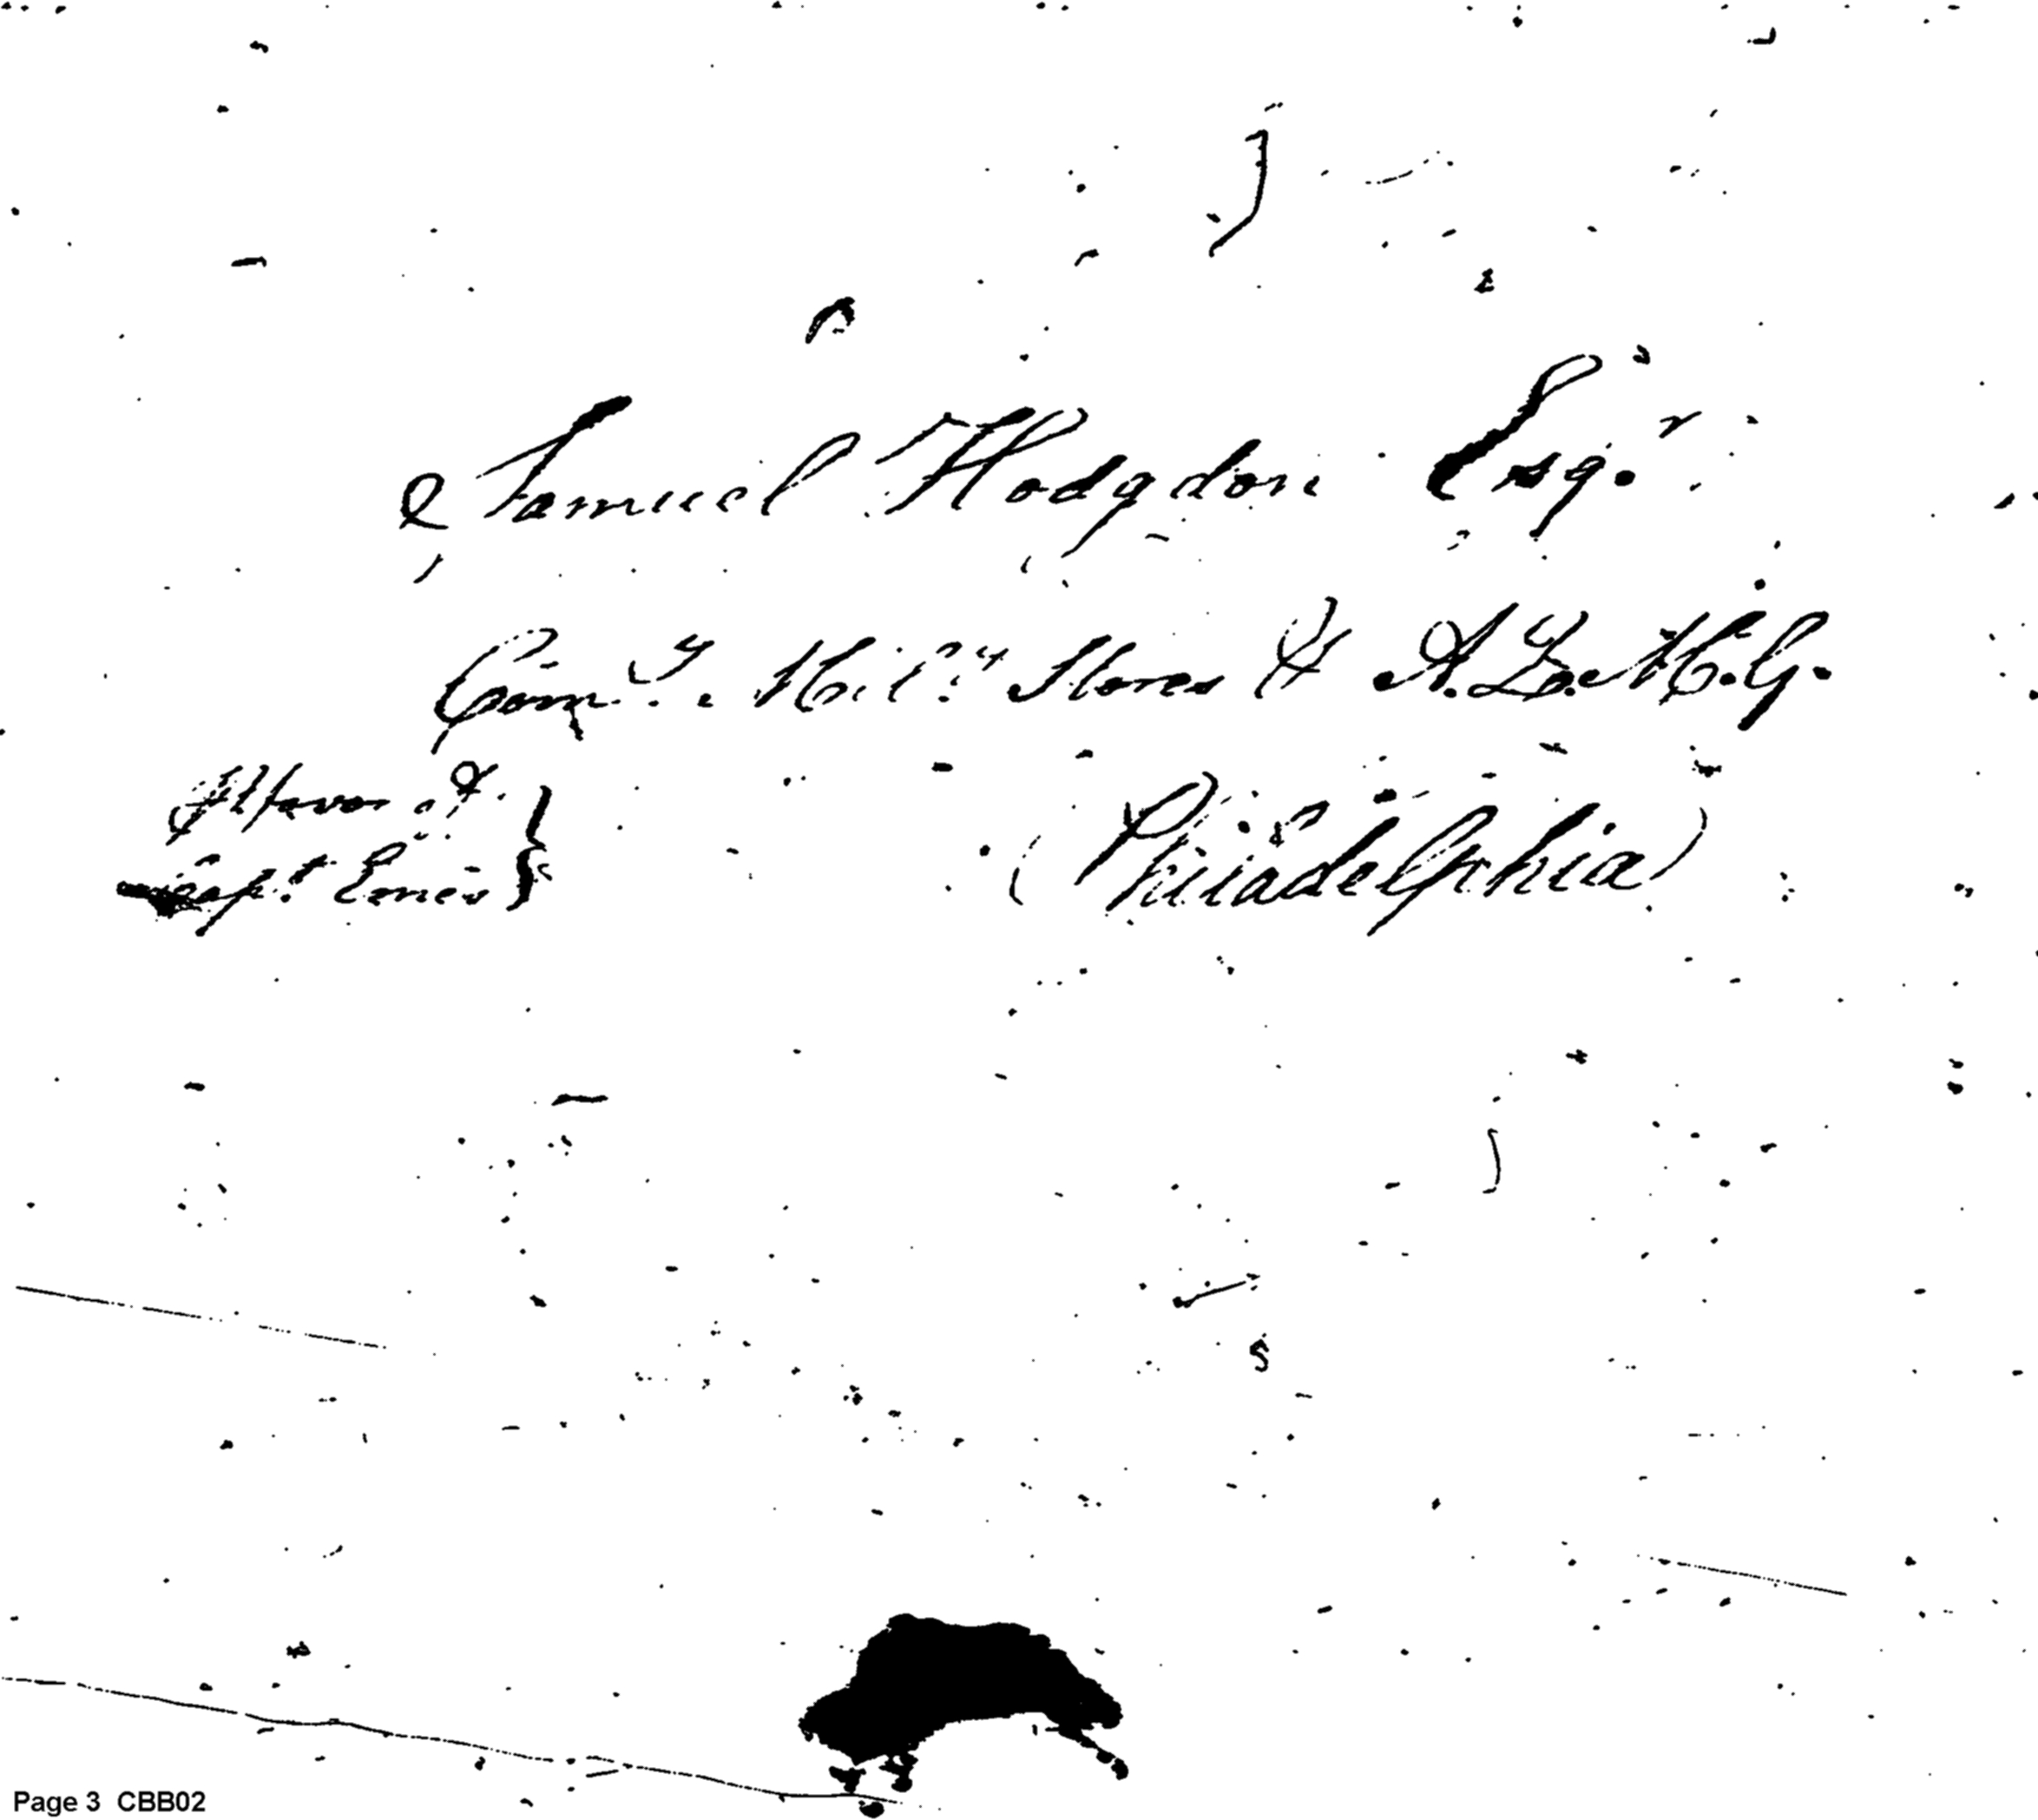 Samuel Hodgdon Esqr.
Comy. Mily. Stores & A.Q.M.G.
Favor of
Capt. Ernest
(Philadelphia)
Page 3 CBB02